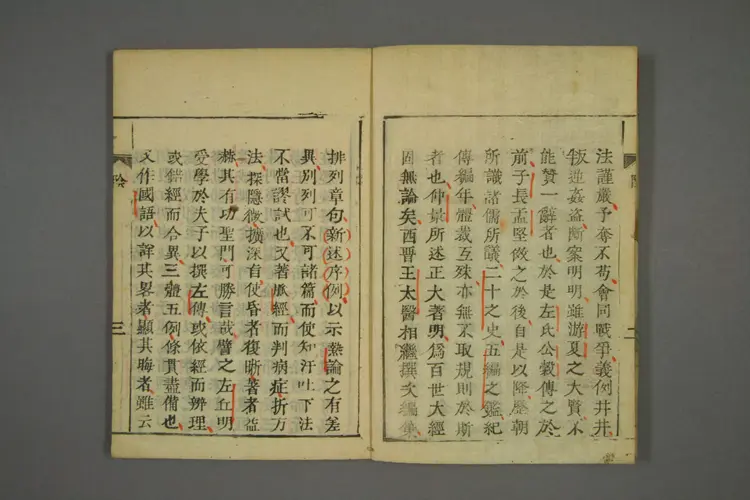 法謹嚴予奪不苟會同戰爭義例井井
叛逆姦盗斷案明明雖游夏之大賢不
能贊一辭者也於是左氏公穀傳之於
前子長孟堅倣之於後自是以降歷朝
所識諸儒所議二十之史五編之鑑紀
傳編年體裁互殊亦無不取規則於斯
者也仲景所述正大著明爲百世大經
固無論矣西晋王太醫相繼撰次編集
排列章句新述序例以示熱論之有差
異別列可不可諸篇而使知汗吐下法
不當謬試也又著脉經而判病症折方
法探隱微擴深自使昏者復晣著者益
赫其有功聖門可勝言哉譬之左丘明
受學於夫子以撰左傳或依經而辨理
或錯經而合異三體五例條貫盡備也
又作國語以詳其畧者顯其晦者雖云
三